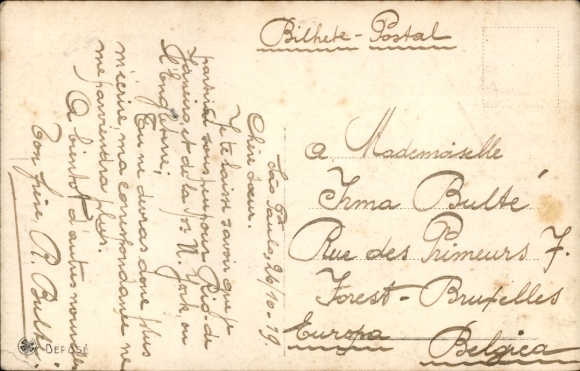 Bilhete-Postal
São Paulo, 26/10-19
Chère sœur.
Je te laisse savoir que je
partirai sous peu pour Rio de
Janeiro et de la pr. N. York, ou
l'Engleterre,
Tu ne devras donc plus
m'écrire, ma correspondance ne
me parviendra plus.
A bientôt d'autres nouvelles
Ton frère R. Bulté.
a Mademoiselle
Irma Bulté
Rue des Primeurs 7.
Forest-Bruxelles
Europa
Belgica
DEPOSÉ